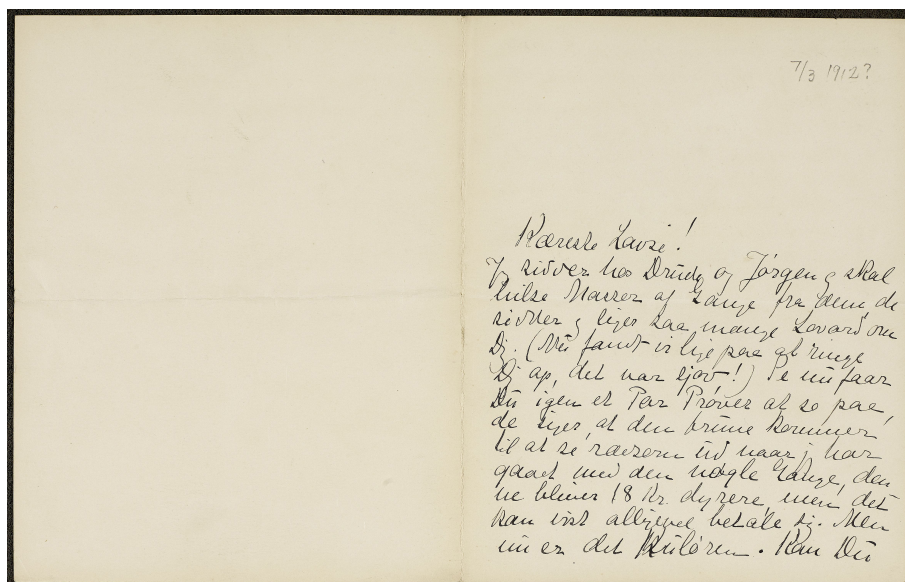 7/3 1912?
Kæreste Lavse!
Jg sidder hos Drude og Jørgen g skal
hilse Masser af Gange fra dem, de
sidder g siger saa mange Lovord om
Dig. (Nu fandt vi lige paa at ringe
Dg op, det var sjov!) Se nu faar
Du igen et Par Prøver at se paa,
de siger, at den brune kommer
til at se rædsom ud naar j har
gaaet med den nogle Gange, den
ne bliver 18 Kr. dyrere, men det
kan vist alligevel betale sig. Men
nu er det Kuløren. Kan Du